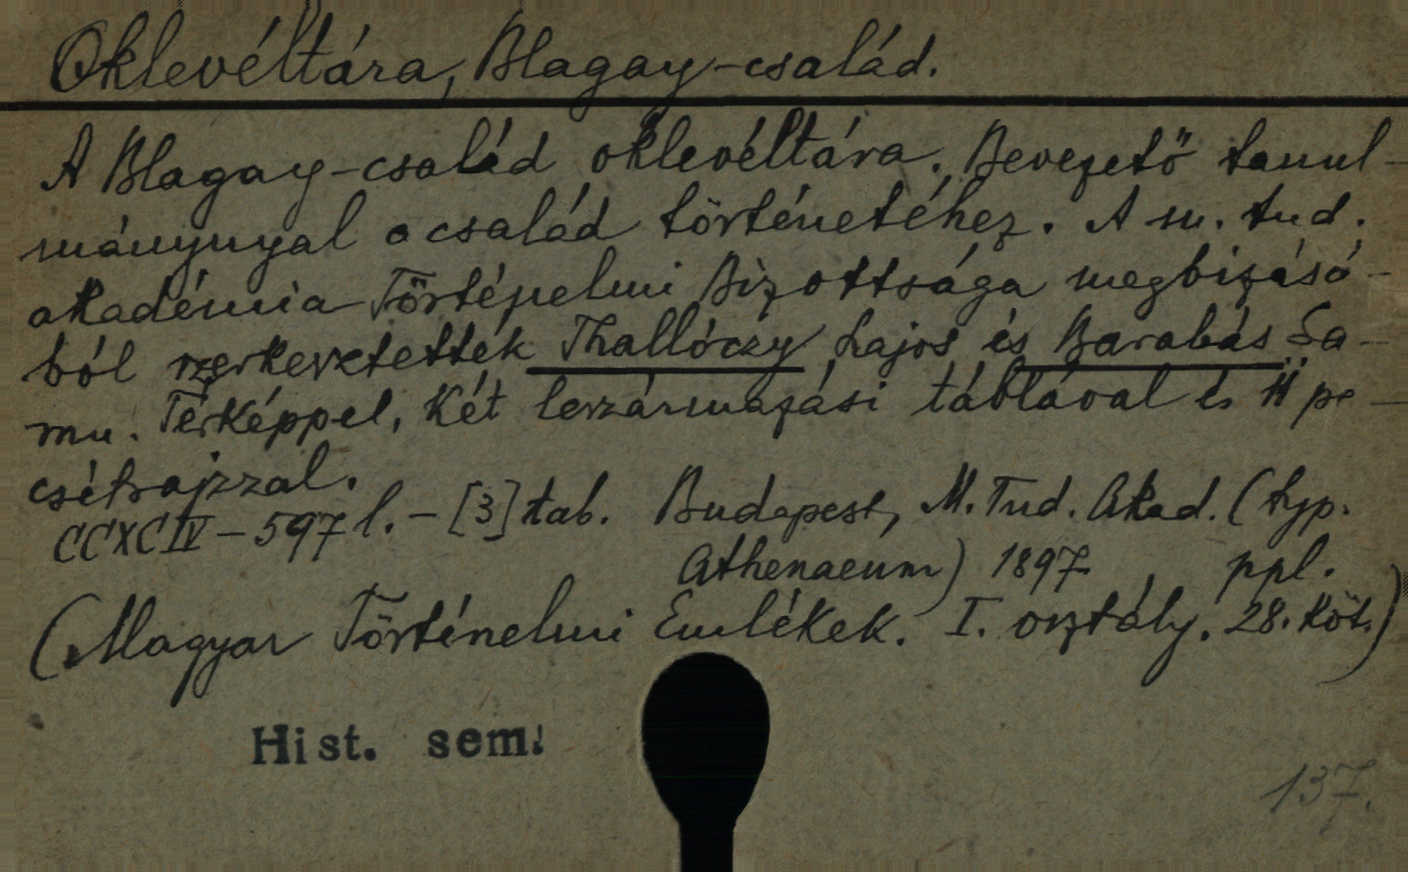 Oklevéltára, Blagay-család.
A Blagay-család oklevéltára. Bevezető tanul-
mánynyal a család történetéhez. A m. tud.
akadémia Történelmi Bizottsága megbizásá-
ból szerkesztették Thallóczy Lajos és Barabás Sa-
mu. Térképpel, két leszármazási táblával és 11 pe-
csétrajzzal.
CCXCIV-597 l. - [3] tab. Budapest, M. Tud. Akad. (typ.
Athenaeum) 1897. ppl.
(Magyar Történelmi Emlékek. I. osztály. 28. köt.)
Hist. sem.
137.